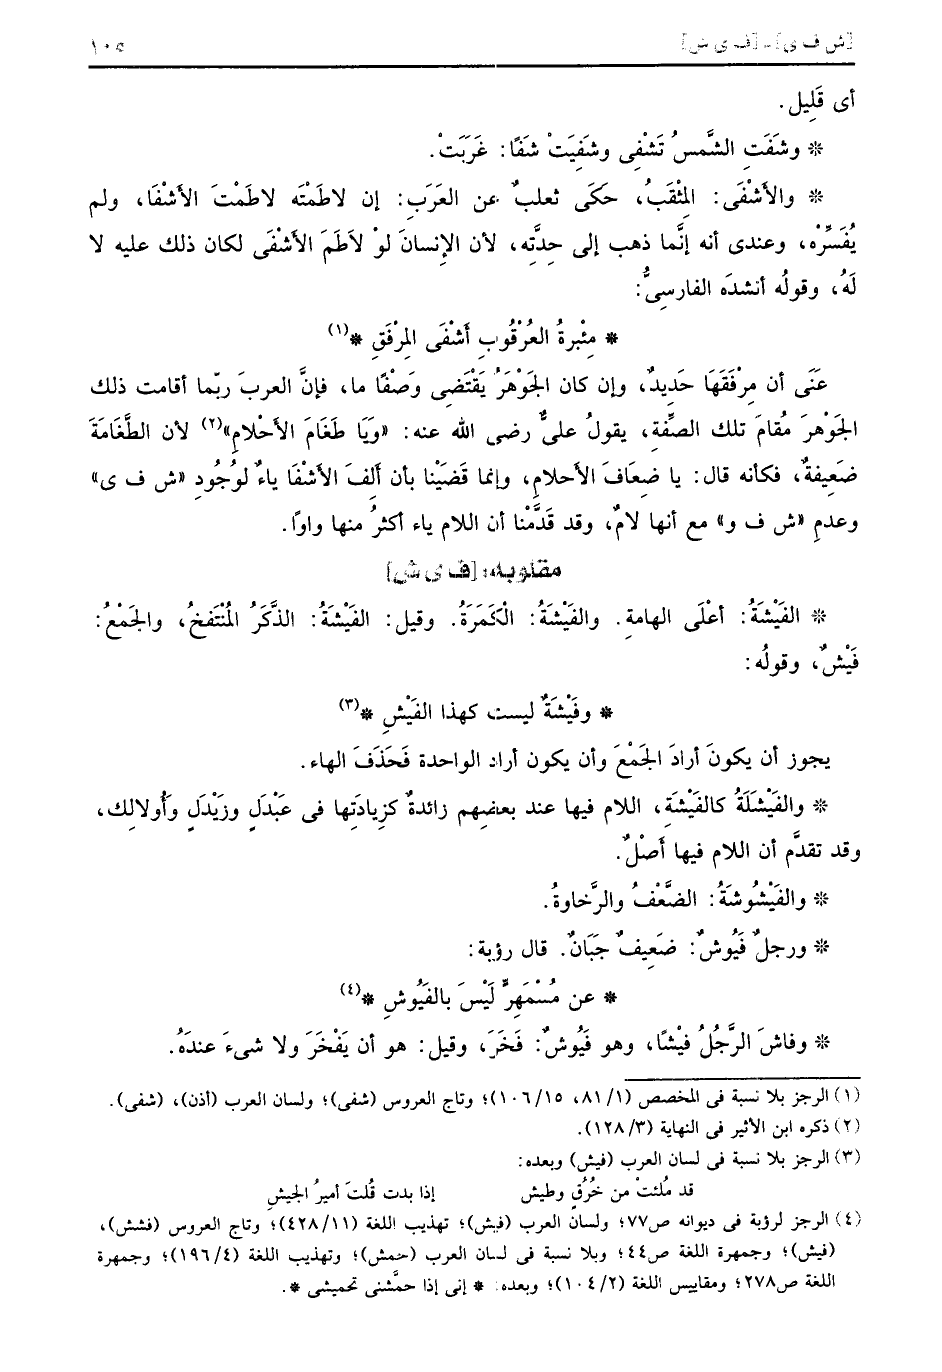 [ش ف ى] - [ف ى ش]
١٠٥
أى قَلِيل.
* وشَفَتِ الشَّمسُ تَشْفِى وشَفِيَتْ شَفًا: غَرَبَتْ.
* والأَشْفَى: المِثْقَبُ، حَكَى ثعلبٌ عن العَرَبِ: إن لاطَمْتَه لاطَمْتَ الأَشْفَا، ولم
يُفَسِّرْه، وعندى أنه إنَّما ذهب إلى حِدَّتِه، لأن الإنسانَ لوْ لاَطَمَ الأَشْفَى لكان ذلك عليه لا
لَهُ، وقولُه أنشدَه الفارسىُّ:
* مِئْبرةُ العُرْقُوبِ أَشْفَى المِرْفَقِ *(١)
عَنَى أن مِرْفَقَهَا حَدِيدٌ، وإن كان الجَوْهَرُ يَقْتَضِى وَصْفًا ما، فإنَّ العربَ ربّما أقامت ذلك
الجَوْهرَ مُقامَ تلك الصِّفة، يقولُ علىٌّ رضى الله عنه: «وَيَا طَغَامَ الأَحْلامِ»(٢) لأن الطَّغَامَةَ
ضَعِيفةٌ، فكأنه قال: يا ضِعَافَ الأحلامِ، وإنما قضَيْنا بأن أَلِفَ الأَشْفَا ياءٌ لوُجُودِ «ش ف ى»
وعدمِ «ش ف و» مع أنها لامٌ، وقد قدَّمْنا أن اللام ياء أكثرُ منها واوًا.
مقلوبه: [ف ى ش]
* الفَيْشَةُ: أعْلَى الهامةِ. والفَيْشَةُ: الكَمَرَةُ. وقيل: الفَيْشَةُ: الذَّكَرُ المُنْتَفِخُ، والجَمْعُ:
فَيْشٌ، وقولُه:
* وفَيْشَةٌ ليست كهذا الفَيْشِ *(٣)
يجوز أن يكونَ أرادَ الجَمْعَ وأن يكون أراد الواحدة فَحَذَفَ الهاء.
* والفَيْشَلَةُ كالفَيْشَةِ، اللام فيها عند بعضِهم زائدةٌ كزِيادَتِها فى عَبْدَلٍ وزَيْدَلٍ وأُولالِك،
وقد تقدَّم أن اللام فيها أَصْلٌ.
* والفَيْشُوشَةُ: الضَّعْفُ والرَّخاوةُ.
* ورجلٌ فَيُوشٌ: ضَعِيفٌ جَبَانٌ. قال رؤبة:
* عن مُسْمَهِرٍّ لَيْسَ بالفَيُوشِ *(٤)
* وفاشَ الرَّجُلُ فيْشًا، وهو فَيُوشٌ: فَخَرَ، وقيل: هو أن يَفْخَرَ ولا شىءَ عندَهُ.
(١) الرجز بلا نسبة فى المخصص (١/ ٨١، ١٥/ ١٠٦)؛ وتاج العروس (شفى)؛ ولسان العرب (أذن)، (شفى).
(٢) ذكره ابن الأثير فى النهاية (٣/ ١٢٨).
(٣) الرجز بلا نسبة فى لسان العرب (فيش) وبعده:
قد مُلئتْ من خُرُقٍ وطيش إذا بدت قُلتَ أميرُ الجيشِ
(٤) الرجز لرؤبة فى ديوانه ص٧٧؛ ولسان العرب (فيش)؛ تهذيب اللغة (١١/ ٤٢٨)؛ وتاج العروس (فشش)،
(فيش)؛ وجمهرة اللغة ص٤٤؛ وبلا نسبة فى لسان العرب (حمش)؛ وتهذيب اللغة (٤/ ١٩٦)؛ وجمهرة
اللغة ص٢٧٨؛ ومقاييس اللغة (٢/ ١٠٤)؛ وبعده: * إنى إذا حمَّشنى تحميشى *.